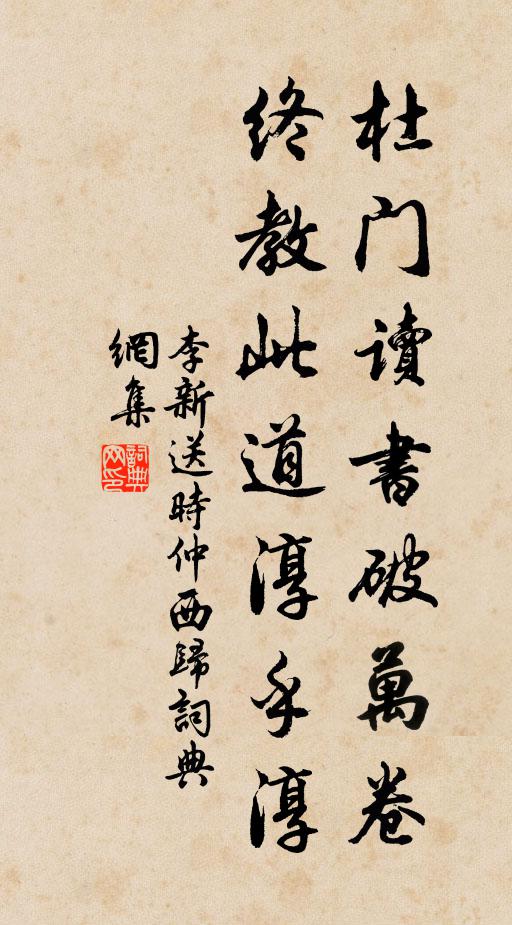 杜门讀書破萬卷
終教此道淳乎淳
李新送時仲西歸詞典
網集
詞典网印